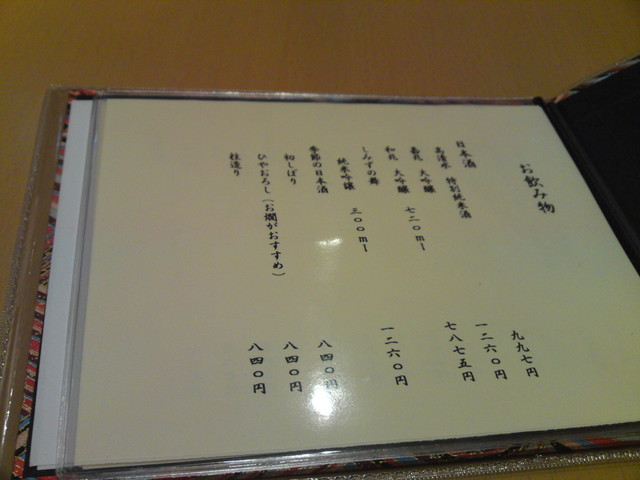 お飲み物
日本酒
高清水 特別純米酒 九九七円
嘉兆 大吟醸 一二六〇円
和兆 大吟醸 七二〇ml 七八七五円
しみずの舞
純米吟醸 三〇〇ml 一二六〇円
季節の日本酒
初しぼり 八四〇円
ひやおろし(お燗がおすすめ) 八四〇円
枝造り 八四〇円